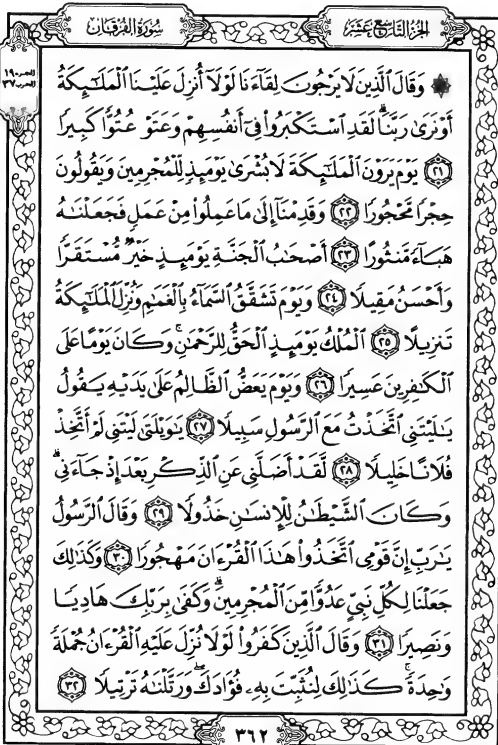 الجزء التاسع عشر
سورة الفرقان
وَقَالَ ٱلَّذِينَ لَا يَرْجُونَ لِقَآءَنَا لَوْلَآ أُنزِلَ عَلَيْنَا ٱلْمَلَٰٓئِكَةُ
أَوْ نَرَىٰ رَبَّنَا ۗ لَقَدِ ٱسْتَكْبَرُوا۟ فِىٓ أَنفُسِهِمْ وَعَتَوْ عُتُوًّا كَبِيرًا
٢١ يَوْمَ يَرَوْنَ ٱلْمَلَٰٓئِكَةَ لَا بُشْرَىٰ يَوْمَئِذٍ لِّلْمُجْرِمِينَ وَيَقُولُونَ
حِجْرًا مَّحْجُورًا ٢٢ وَقَدِمْنَآ إِلَىٰ مَا عَمِلُوا۟ مِنْ عَمَلٍ فَجَعَلْنَٰهُ
هَبَآءً مَّنثُورًا ٢٣ أَصْحَٰبُ ٱلْجَنَّةِ يَوْمَئِذٍ خَيْرٌ مُّسْتَقَرًّا
وَأَحْسَنُ مَقِيلًا ٢٤ وَيَوْمَ تَشَقَّقُ ٱلسَّمَآءُ بِٱلْغَمَٰمِ وَنُزِّلَ ٱلْمَلَٰٓئِكَةُ
تَنزِيلًا ٢٥ ٱلْمُلْكُ يَوْمَئِذٍ ٱلْحَقُّ لِلرَّحْمَٰنِ ۚ وَكَانَ يَوْمًا عَلَى
ٱلْكَٰفِرِينَ عَسِيرًا ٢٦ وَيَوْمَ يَعَضُّ ٱلظَّالِمُ عَلَىٰ يَدَيْهِ يَقُولُ
يَٰلَيْتَنِى ٱتَّخَذْتُ مَعَ ٱلرَّسُولِ سَبِيلًا ٢٧ يَٰوَيْلَتَىٰ لَيْتَنِى لَمْ أَتَّخِذْ
فُلَانًا خَلِيلًا ٢٨ لَّقَدْ أَضَلَّنِى عَنِ ٱلذِّكْرِ بَعْدَ إِذْ جَآءَنِى ۗ
وَكَانَ ٱلشَّيْطَٰنُ لِلْإِنسَٰنِ خَذُولًا ٢٩ وَقَالَ ٱلرَّسُولُ
يَٰرَبِّ إِنَّ قَوْمِى ٱتَّخَذُوا۟ هَٰذَا ٱلْقُرْءَانَ مَهْجُورًا ٣٠ وَكَذَٰلِكَ
جَعَلْنَا لِكُلِّ نَبِىٍّ عَدُوًّا مِّنَ ٱلْمُجْرِمِينَ ۗ وَكَفَىٰ بِرَبِّكَ هَادِيًا
وَنَصِيرًا ٣١ وَقَالَ ٱلَّذِينَ كَفَرُوا۟ لَوْلَا نُزِّلَ عَلَيْهِ ٱلْقُرْءَانُ جُمْلَةً
وَٰحِدَةً ۚ كَذَٰلِكَ لِنُثَبِّتَ بِهِۦ فُؤَادَكَ ۖ وَرَتَّلْنَٰهُ تَرْتِيلًا ٣٢
٣٦٢